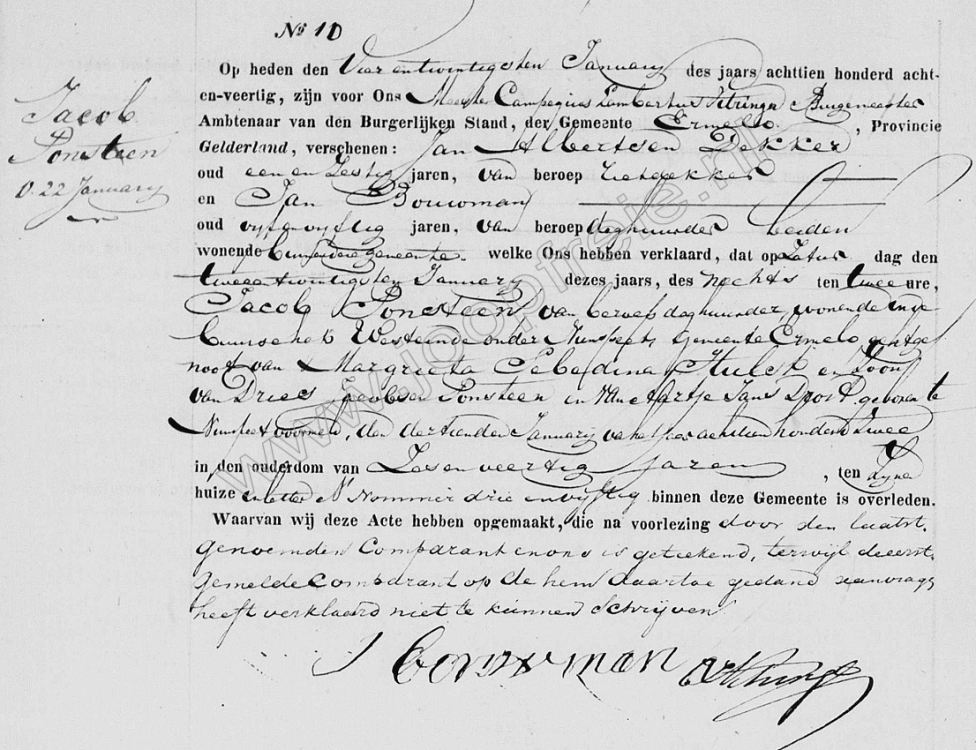 No 10
Op heden den Vier en twintigsten January des jaars achttien honderd acht-
en-veertig, zijn voor Ons Meester Campegius Lambertus Vitringa Burgemeester
Ambtenaar van den Burgerlijken Stand, der Gemeente Ermelo, Provincie
Gelderland, verschenen: Jan Albertsen Dekker
oud een en Zestig jaren, van beroep rietdekker
en Jan Bouwman
oud vyf en vyftig jaren, van beroep daghuurder beiden
wonende binnen deze gemeente. welke Ons hebben verklaard, dat op Satur dag den
twee en twintigsten January dezes jaars, des nachts ten twee ure,
Jacob Ponsteen, van beroep daghuurder, wonende in ge
buurschap Westeinde onder Nunspeet, Gemeente Ermelo, echtge
noot van Margrieta Gebadina Hulst en Zoon
van Dries Jacobsen Ponsteen en van Aartje Jans Drost, geboren te
Nunspeet voormeld, den dertienden January van het jaar achttien honderd twee
in den ouderdom van Zes en veertig jaren, ten Zynen
huize en letter N Nommer drie en vyftig binnen deze Gemeente is overleden.
Waarvan wij deze Acte hebben opgemaakt, die na voorlezing door den laatst.
genoemden Comparant en ons is geteekend, terwijl de eerst.
gemelde Comparant op de hem daartoe gedane aanvrage
heeft verklaard niet te kunnen Schrijven
J Bouwman
Jacob
Ponsteen
O. 22 January
www.joopfreie.nl